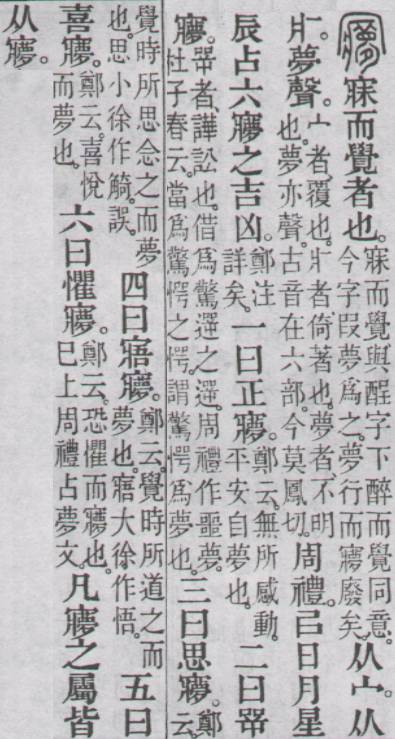 㝱寐而覺者也。寐而覺與醒字下醉而覺同意。今字叚夢爲之。夢行而㝱廢矣。从宀。从
疒。夢聲。宀者、覆也。疒者倚著也。夢者、不明也。夢亦聲。古音在六部。今莫鳳切。周禮。㠯日月星
辰占六㝱之吉凶。鄭注詳矣。一曰正㝱。鄭云。無所感動。平安自夢也。二曰咢
㝱。咢者、譁訟也。借爲驚遻之遻。周禮作噩夢。杜子春云。當爲驚愕之愕。謂驚愕爲夢也。三曰思㝱。鄭云。
覺時所思念之而夢也。思小徐作觭。誤。四曰寤㝱。鄭云。覺時所道之而夢也。寤大徐作悟。五曰
喜㝱。鄭云。喜悅而夢也。六曰懼㝱。鄭云。恐懼而㝱也。㠯上周禮占夢文。凡㝱之屬皆
从㝱。